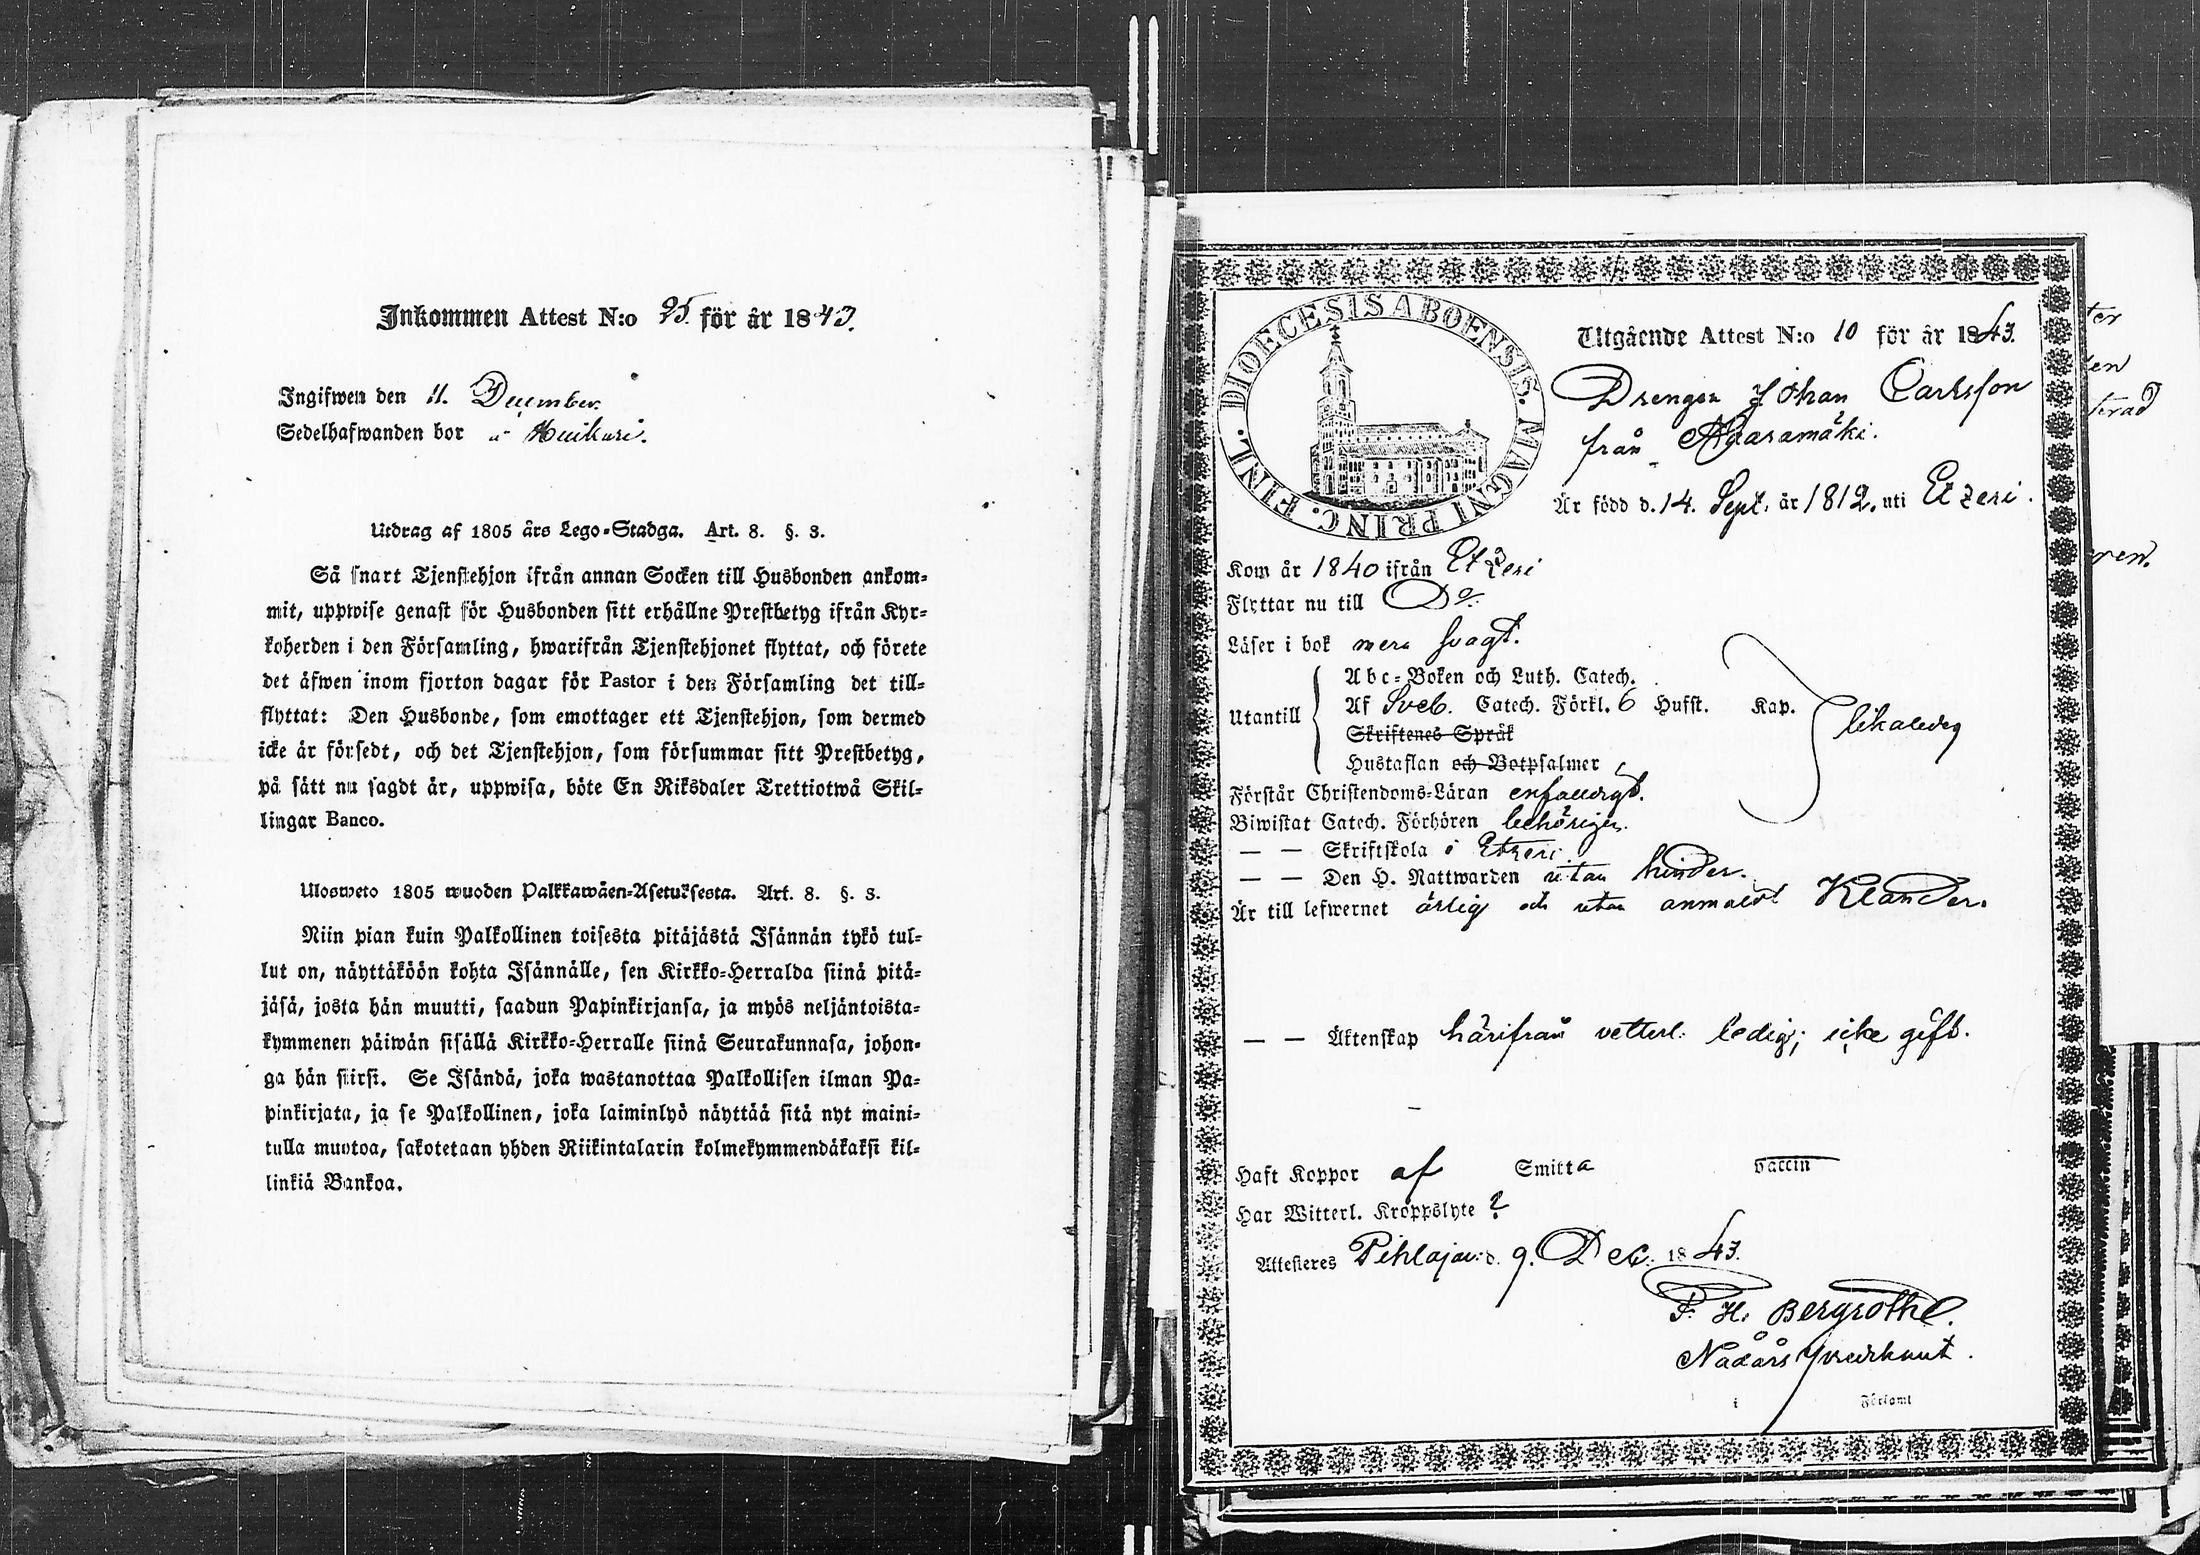 Inkommen Attest N:o 25. för år 1843.
Ingifwen den 11. December.
Sedelhafwanden bor å Huikuri.
Utdrag af 1805 års Lego-Stadga. Art. 8. §. 3.
Så snart Tjenstehjon ifrån annan Socken till Husbonden ankom-
mit, uppwise genast för Husbonden sitt erhållne Prestbetyg ifrån Kyr-
koherden i den Församling, hwarifrån Tjenstehjonet flyttat, och förete
det äfwen inom fjorton dagar för Pastor i den Församling det till-
flyttat: Den Husbonde, som emottager ett Tjenstehjon, som dermed
icke är försedt, och det Tjenstehjon, som försummar sitt Prestbetyg,
på sätt nu sagdt är, uppwisa, böte En Riksdaler Trettiotwå Skil-
lingar Banco.
Ulosweto 1805 wuoden Palkkawäen-Asetuksesta. Art. 8. §. 3.
Niin pian kuin Palkollinen toisesta pitäjästä Isännän tykö tul-
lut on, näyttäköön kohta Isännälle, sen Kirkko-Herralda siinä pitä-
jäsä, josta hän muutti, saadun Papinkirjansa, ja myös neljäntoista-
kymmenen päiwän sisällä Kirkko-Herralle siinä Seurakunnasa, johon-
ga hän siirsi. Se Isändä, joka wastanottaa Palkollisen ilman Pa-
pinkirjata, ja se Palkollinen, joka laiminlyö näyttää sitä nyt maini-
tulla muotoa, sakotetaan yhden Riikintalarin kolmekymmendäkaksi kil-
linkiä Bankoa.
DIOECESIS ABOENSIS. MAGNI PRINC. FINL.
Utgående Attest N:o 10 för år 1843.
Drengen Johan Carlsson
från Haaramäki.
Är född d. 14. Sept. år 1812. uti Etzeri.
Kom år 1840 ifrån Etzeri
Flyttar nu till Do.
Läser i bok mera svagt.
Utantill
Abc-Boken och Luth. Catech.
Af Sveb. Catech. Förkl. 6 Hufst. Kap.
Skriftenes Språk
Hustaflan och Botpsalmer
likaledes
Förstår Christendoms-Läran enfaldigt.
Biwistat Catech. Förhören behörigen.
— — Skriftskola i Etzeri.
— — Den H. Nattwarden utan hinder.
Är till lefwernet ärlig och utan anmäldt Klander.
— — Äktenskap härifrån vetterl: ledig; icke gift.
Haft Koppor af Smitta vaccin
Har Witterl. Kroppslyte ?
Attesteres Pihlajav: d. 9. Dec. 1843.
F. H. Bergroth.
Nådårs
i Församl
ter
en
ren.